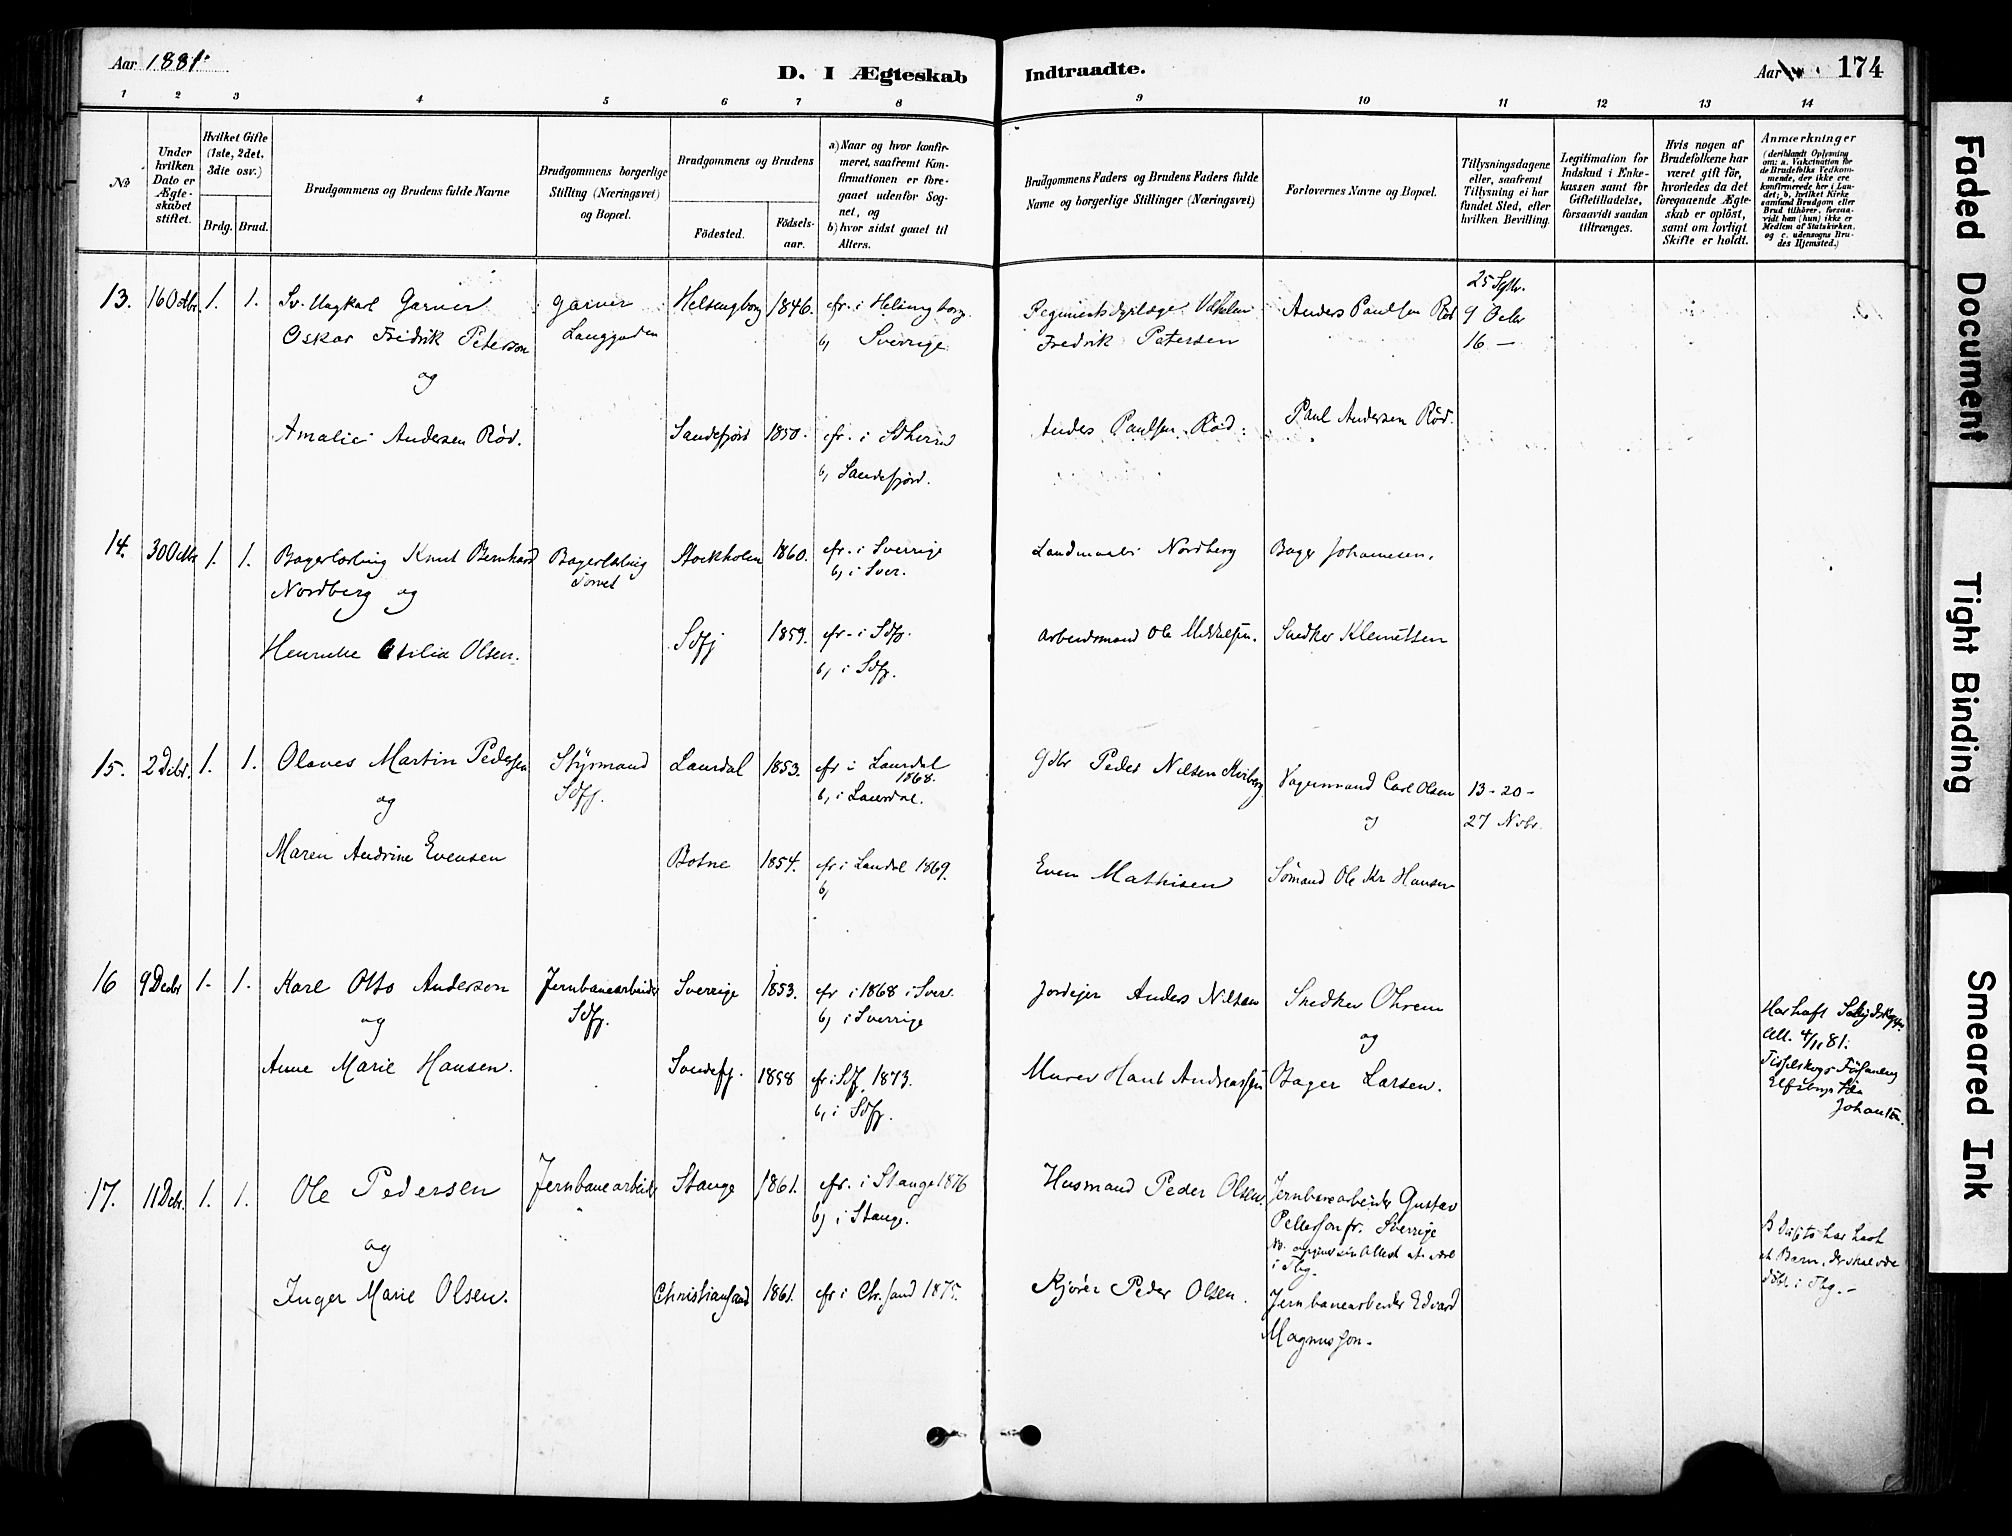 Aar 1881.
D. I Ægteskab
Indtraadte.
Aar
174
1 2 3 4 5 6 7 8 9 10 11 12 13 14
No
Under hvilken Dato er Ægteskabet stiftet.
Hvilket Gifte (1ste, 2det, 3die osv.)
Brdg. Brud.
Brudgommens og Brudens fulde Navne
Brudgommens borgerlige Stilling (Næringsvei) og Bopæl.
Brudgommens og Brudens
Fødested.
Fødselsaar.
a) Naar og hvor konfirmeret, saafremt Konfirmationen er foregaaet udenfor Sognet, og
b) hvor sidst gaaet til Alters.
Brudgommens Faders og Brudens Faders fulde Navne og borgerlige Stillinger (Næringsvei)
Forlovernes Navne og Bopæl.
Tillysningsdagene eller, saafremt Tillysning ei har fundet Sted, efter hvilken Bevilling.
Legitimation for Indskud i Enkekassen samt for Giftetilladelse, forsaavidt saadan tiltrænges.
Hvis nogen af Brudefolkene har været gift før, hvorledes da det foregaaende Ægteskab er opløst, samt om lovligt Skifte er holdt.
Anmærkninger
(deriblandt Oplysning om: a. Vakcination for de Brudefolks Vedkommende, der ikke ere konfirmerede her i Landet; b. hvilket Kirkesamfund Brudgom eller Brud tilhører, forsaavidt han (hun) ikke er Medlem af Statskirken, og c. udensogns Brudes Hjemsted.)
13. 16 Octbr. 1. 1. Sv. Ungkarl Garver
Oskar Fredrik Peterson
og
Garver
Langgaden
Helsingborg 1846. cfr. i Helsingborg.
b, Sverrige
Fredrik Petersen
Anders Paulsen Rød
25 Septbr.
9 Octbr
16 —
Amalie Andersen Rød.
Sandefjord 1850. cfr. i Stherred
b, Sandefjord.
Anders Paulsen Rød.
Paul Andersen Rød.
14. 30 Octbr 1. 1. Bagerlærling Knut Bernhard
Nordberg og
Bagerlærling
Torvet
Stockholm 1860. cfr. i Sverrige
b, i Sver.
Landmaaler Nordberg
Bager Johannesen.
Henrikke Otilia Olsen.
Sdfj 1859. cfr. i Sdfj.
b, i Sdfj.
Arbeidsmand Ole Mikkelsen.
Snedker Klemetsen
15. 2 Debr. 1. 1. Olaves Martin Pedersen
og
Styrmand
Sdfj.
Laurdal 1853. cfr i Laurdal
1868.
b, i Laurdal.
Gdbr Peder Nilsen
Vognmand Carl Olsen
og
13 - 20 -
27 Novbr.
Maren Andrine Evensen
Botne 1854. cfr i Laurdal 1869.
b,
Even Mathisen
Sømand Ole Kr Hansen
16 9 Decbr 1. 1. Karl Otto Anderson
og
Jernbanearbeider
Sdfj.
Sverrige 1853. cfr i 1868 i Sver.
b, i Sverrige
Jordejer Anders Nilsson
Snedker Ohrem
og
Anne Marie Hansen.
Sandefj. 1858 cfr i Sdfj. 1873.
b, i Sdfj.
Murer Hans Andreassen
Bager Larsen.
Har havt
Att. 4/11 81.
Johansen.
17. 11 Debr. 1. 1. Ole Pedersen
og
Jernbanearbeider
Stange 1861. cfr. i Stange 1876
b, i Stange.
Husmand Peder Olsen.
Jernbanearbeider Gustav
Petterson fr. Sverrige
i Tbg.
Inger Marie Olsen.
Christiansand 1861. cfr i Chr.sand 1875.
Kjører Peder Olsen.
Jernbanearbeider Edvard
Magnusson.
har havt
et Barn, der skal være
døbt i Tbg.
Faded Document
Tight Binding
Smeared Ink